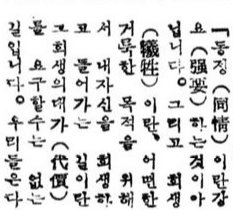 『동정(同情)이란강
요(强要)하는것이아
닙니다。그리고 희생
(犧牲)이란、어떠한
거룩한 목적을 위해
서 내자신을 희생하
고 들어가는 길이란
그희생의대가(代價)
를 요구할수는 없는
길입니다。우리들은다